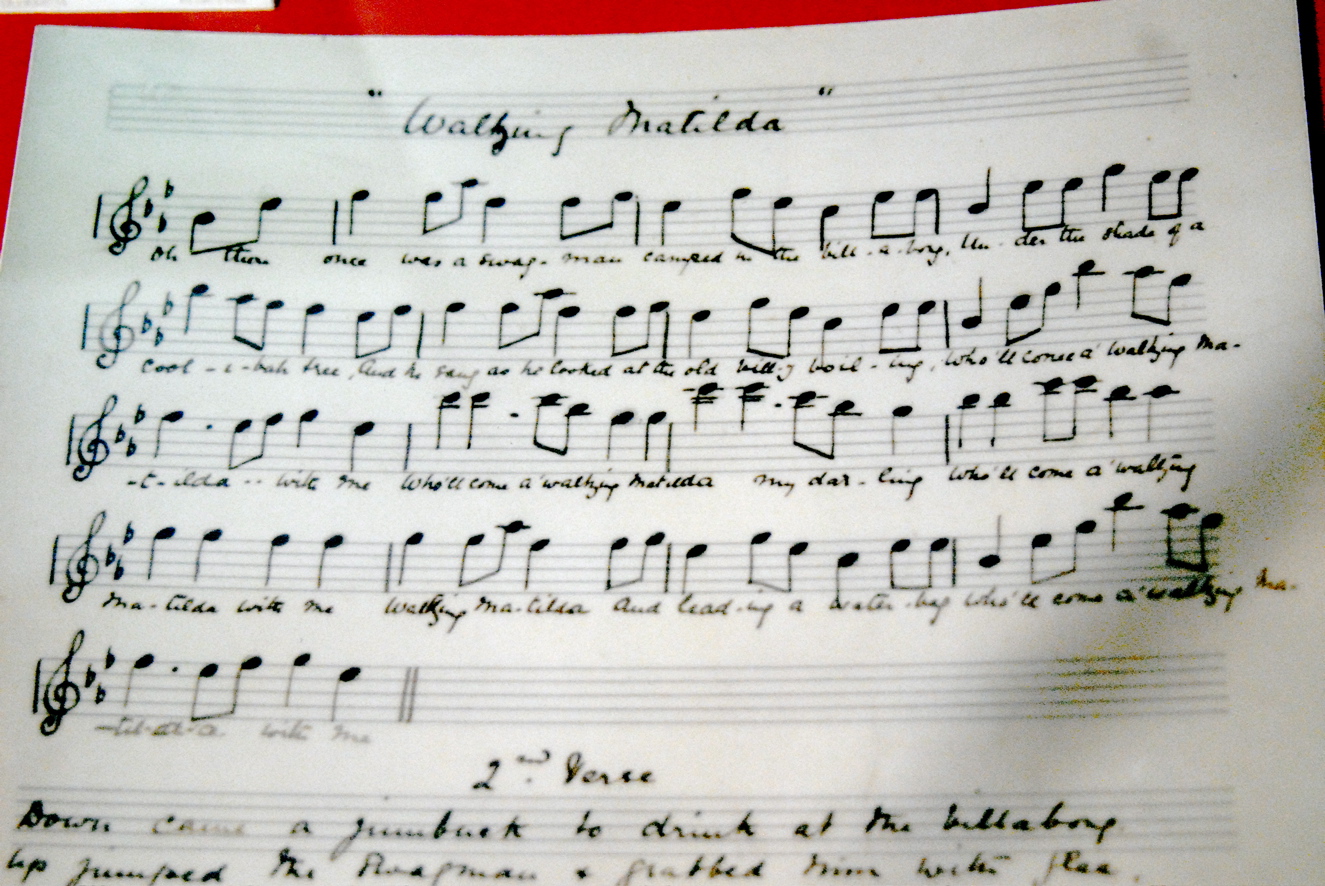 " Waltzing Matilda "
Oh there once was a swag-man camped in the bill-a-bong, Un-der the shade of a
cool-i-bah tree, And he sang as he looked at the old bill-y boil-ing, Who'll come a' waltzing Ma-
-t-ilda -- with me Who'll come a' waltzing Matilda my dar-ling Who'll come a' waltzing
Ma-tilda with me Waltzing Ma-tilda and lead-ing a water-bag who'll come a' waltzing Ma-
with me
2nd Verse
Down came a jumbuck to drink at the billabong
Up jumped the Swagman & grabbed him with glee.